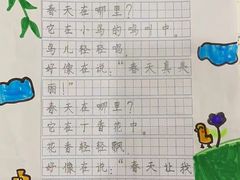 春天在哪里？
它在小鸟的鸣叫中。
鸟儿轻轻唱，
好像在说：“春天真美
丽！”
春天在哪里？
它在丁香花中。
花香轻轻飘，
好像在说：“春天让我